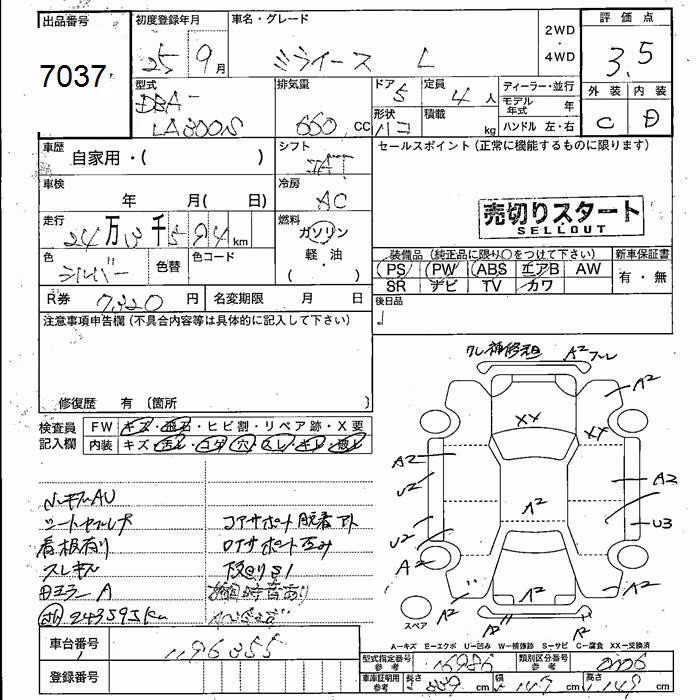 出品番号
7037
初度登録年月
25 9月
車名・グレード
ミライース L
2WD
・
4WD
評価点
3.5
外装 内装
C D
型式
DBA-
LA300S
排気量
660 cc
ドア
5
形状
ハコ
定員
4人
積載
kg
ディーラー・並行
モデル年式 年
ハンドル 左・右
車歴
自家用・( )
シフト
セールスポイント(正常に機能するものに限ります)
車検
年 月( 日)
冷房
AC
走行
24万3千594km
燃料
ガソリン
・
軽・油
( )
売切りスタート
SELLOUT
色
シルバー
色替
色コード
装備品(純正品に限り○をつけて下さい)
新車保証書
PS PW ABS エアB AW
有・無
SR ナビ TV カワ
R券 7,320円
名変期限 月 日
後日品
注意事項申告欄(不具合内容等は具体的に記入して下さい)
修復歴 有〔箇所 〕
検査員
記入欄
FW キズ・飛石・ヒビ割・リペア跡・X要
内装 キズ・汚レ・コゲ・穴・スレ・キレ・悪し
シートヤブレ大
看板有り
スレキズ
田エラーA
243595km
コアサポート脱着アト
ロアサポート凹み
下廻りS1
補修
A2
A2
XX
XX
A2
U2
U2
A2
A2
A2
U3
A2
A2
A2
A2
A2
A2
スペア
A-キズ E-エクボ U-凹み W-補修跡 S-サビ C-腐食 XX-交換済
車台番号
1196355
登録番号
型式指定番号
参考
16986
類別区分番号
参考
0006
車庫証明用
参考
長さ 339cm
幅 147cm
高さ 149cm